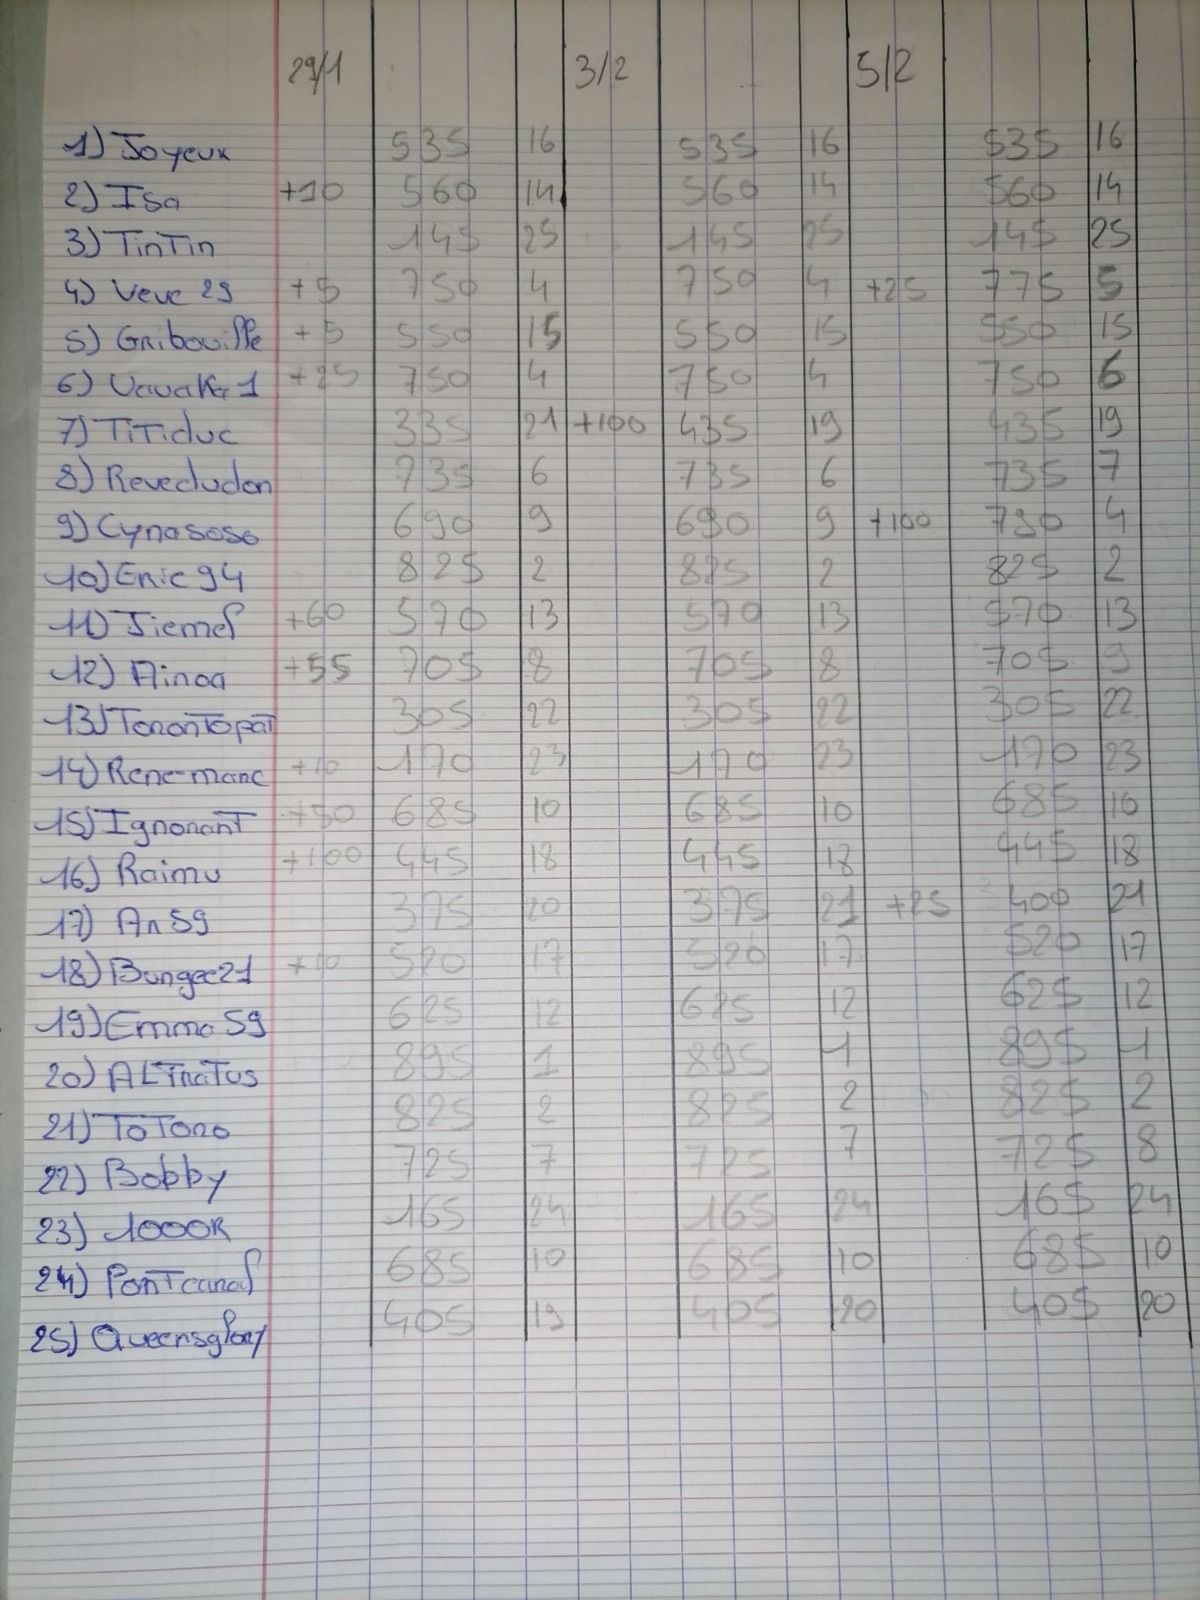 29/1 3/2 5/2
1) Joyeux 535 16 535 16 535 16
2) Isa +10 560 14 560 14 560 14
3) TinTin 145 25 145 25 145 25
4) Veve 29 +5 750 4 750 4 +25 775 5
5) Gribouille +5 550 15 550 15 550 15
6) Vavakr1 +25 750 4 750 4 750 6
7) TiTiduc 335 21 +100 435 19 435 19
8) Revedudon 735 6 735 6 735 7
9) Cynososo 690 9 690 9 +100 790 4
10) Eric 94 825 2 825 2 825 2
11) Jiemel +60 570 13 570 13 570 13
12) Ainoa +55 705 8 705 8 705 9
13) ToronTopaT 305 22 305 22 305 22
14) Rene-marc +10 170 23 170 23 170 23
15) IgnoranT +50 685 10 685 10 685 10
16) Raimu +100 445 18 445 18 445 18
17) An59 375 20 375 21 +25 400 21
18) Bungee21 +10 520 17 520 17 520 17
19) Emma 59 625 12 625 12 625 12
20) ALTnaTus 895 1 895 1 895 1
21) ToToro 825 2 825 2 825 2
22) Bobby 725 7 725 7 725 8
23) 1000R 165 24 165 24 165 24
24) PonTcanal 685 10 685 10 685 10
25) Queensglory 405 19 405 20 405 20